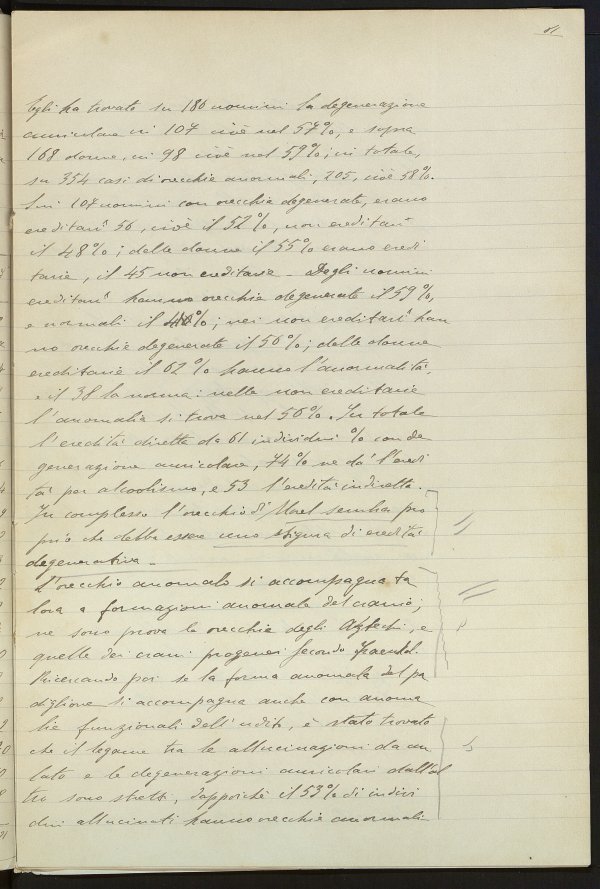 81
Egli ha trovato su 186 uomini la degenerazione
auricolare in 107 cioè nel 57%, e sopra
168 donne, in 98 cioè nel 59%; in totale,
su 354 casi di orecchie anormali, 205, cioè 58%.
Sui 107 uomini con orecchie degenerate, erano
ereditarî 56, cioè il 52%, non ereditarî
il 48%; delle donne il 55% erano eredi
tarie, il 45 non ereditarie - Degli uomini
ereditarî hanno orecchie degenerate il 59%,
e normali il 40%; nei non ereditarî han
no orecchie degenerate il 56%; delle donne
ereditarie il 62% hanno l'anormalità,
e il 38 la norma: nelle non ereditarie
l'anomalia si trova nel 56%. In totale
l'eredità diretta da 61 individui % con de
generazione auricolare, 74% ne dà l'eredi
tà per alcoolismo, e 53 l'eredità indiretta.
In complesso l'orecchio di Morel sembra pro
prio che debba essere uno stigma di eredità
degenerativa -
L'orecchio anomalo si accompagna ta
lora a formazioni anomale del cranio;
ne sono prova le orecchie degli Aztechi, e
quelle dei crani progenei secondo Fraenkel.
Ricercando poi se la forma anomala del pa
diglione si accompagna anche con anoma
lie funzionali dell'udito, è stato trovato
che il legame tra le allucinazioni da un
lato e le degenerazioni auricolari dall'al
tro sono stretti, dappoichè il 53% di indivi
dui allucinati hanno orecchie anormali